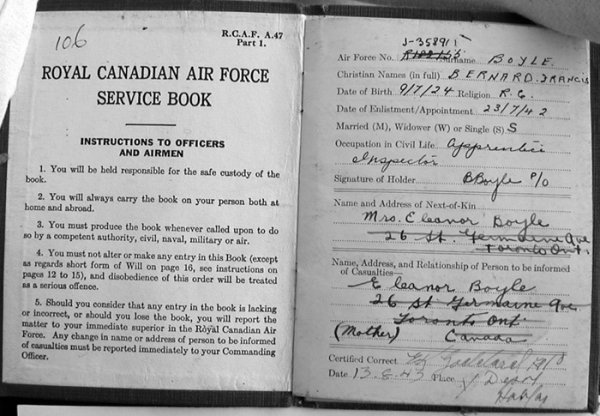 106
R.C.A.F. A.47
Part 1.
ROYAL CANADIAN AIR FORCE
SERVICE BOOK
INSTRUCTIONS TO OFFICERS
AND AIRMEN
1. You will be held responsible for the safe custody of the
book.
2. You will always carry the book on your person both at
home and abroad.
3. You must produce the book whenever called upon to do
so by a competent authority, civil, naval, military or air.
4. You must not alter or make any entry in this Book (except
as regards short form of Will on page 16, see instructions on
pages 12 to 15), and disobedience of this order will be treated
as a serious offence.
5. Should you consider that any entry in the book is lacking
or incorrect, or should you lose the book, you will report the
matter to your immediate superior in the Royal Canadian Air
Force. Any change in name or address of person to be informed
of casualties must be reported immediately to your Commanding
Officer.
J-35891
Air Force No. Surname BOYLE.
Christian Names (in full) BERNARD. FRANCIS
Date of Birth 9/7/24 Religion R.C.
Date of Enlistment/Appointment 23/7/42
Married (M), Widower (W) or Single (S) S
Occupation in Civil Life Apprentice
Inspector
Signature of Holder BBoyle P/O
Name and Address of Next-of-Kin
Mrs. Eleanor Boyle
26 St. Germaine Ave
Toronto Ont.
Name, Address, and Relationship of Person to be informed
of Casualties—
Eleanor Boyle
26 St Germaine Ave
Toronto Ont
(Mother) Canada
Certified Correct
Date 13.8.43 Place Y Depot
Halifax